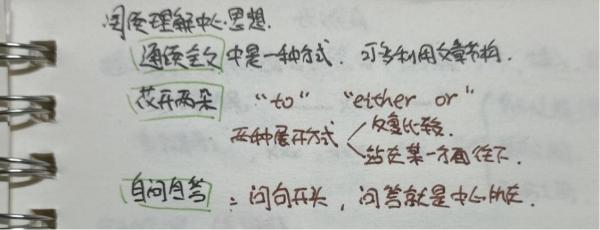 阅读理解中心思想.
通读全文 中是一种方式. 可多利用文章结构.
花开两朵 "to" "either or"
两种展开方式 反复比较.
站在某一方面往下.
自问自答 : 问句开头, 问答就是中心所在.